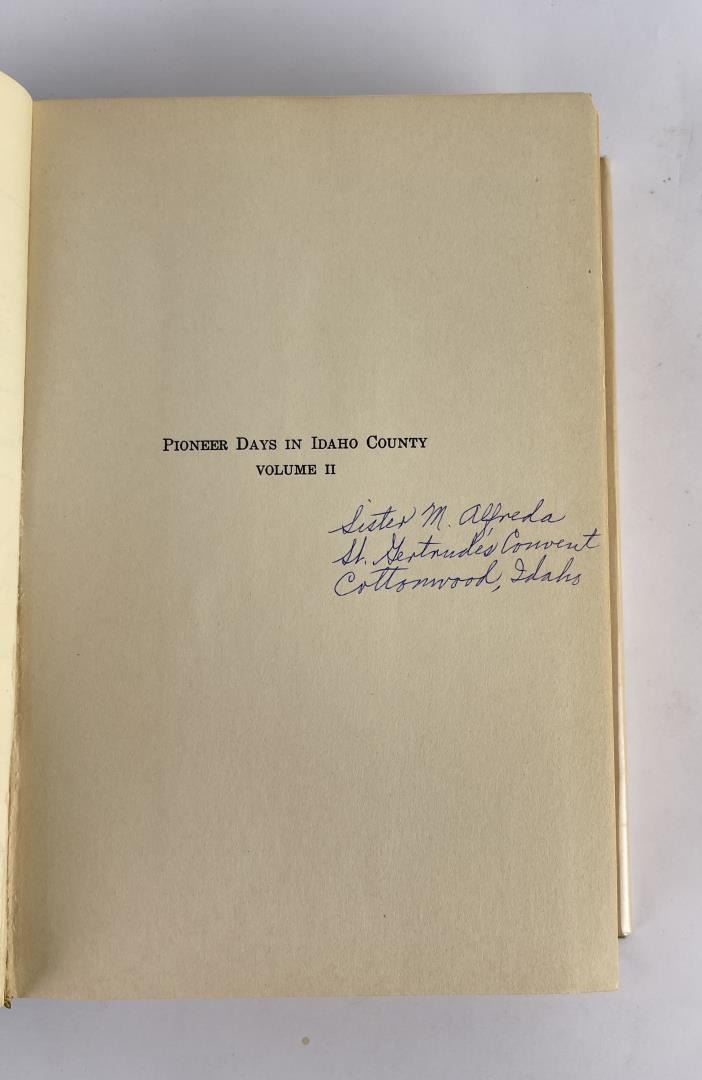 PIONEER DAYS IN IDAHO COUNTY
VOLUME II
Sister M. Alfreda
St. Gertrude's Convent
Cottonwood, Idaho